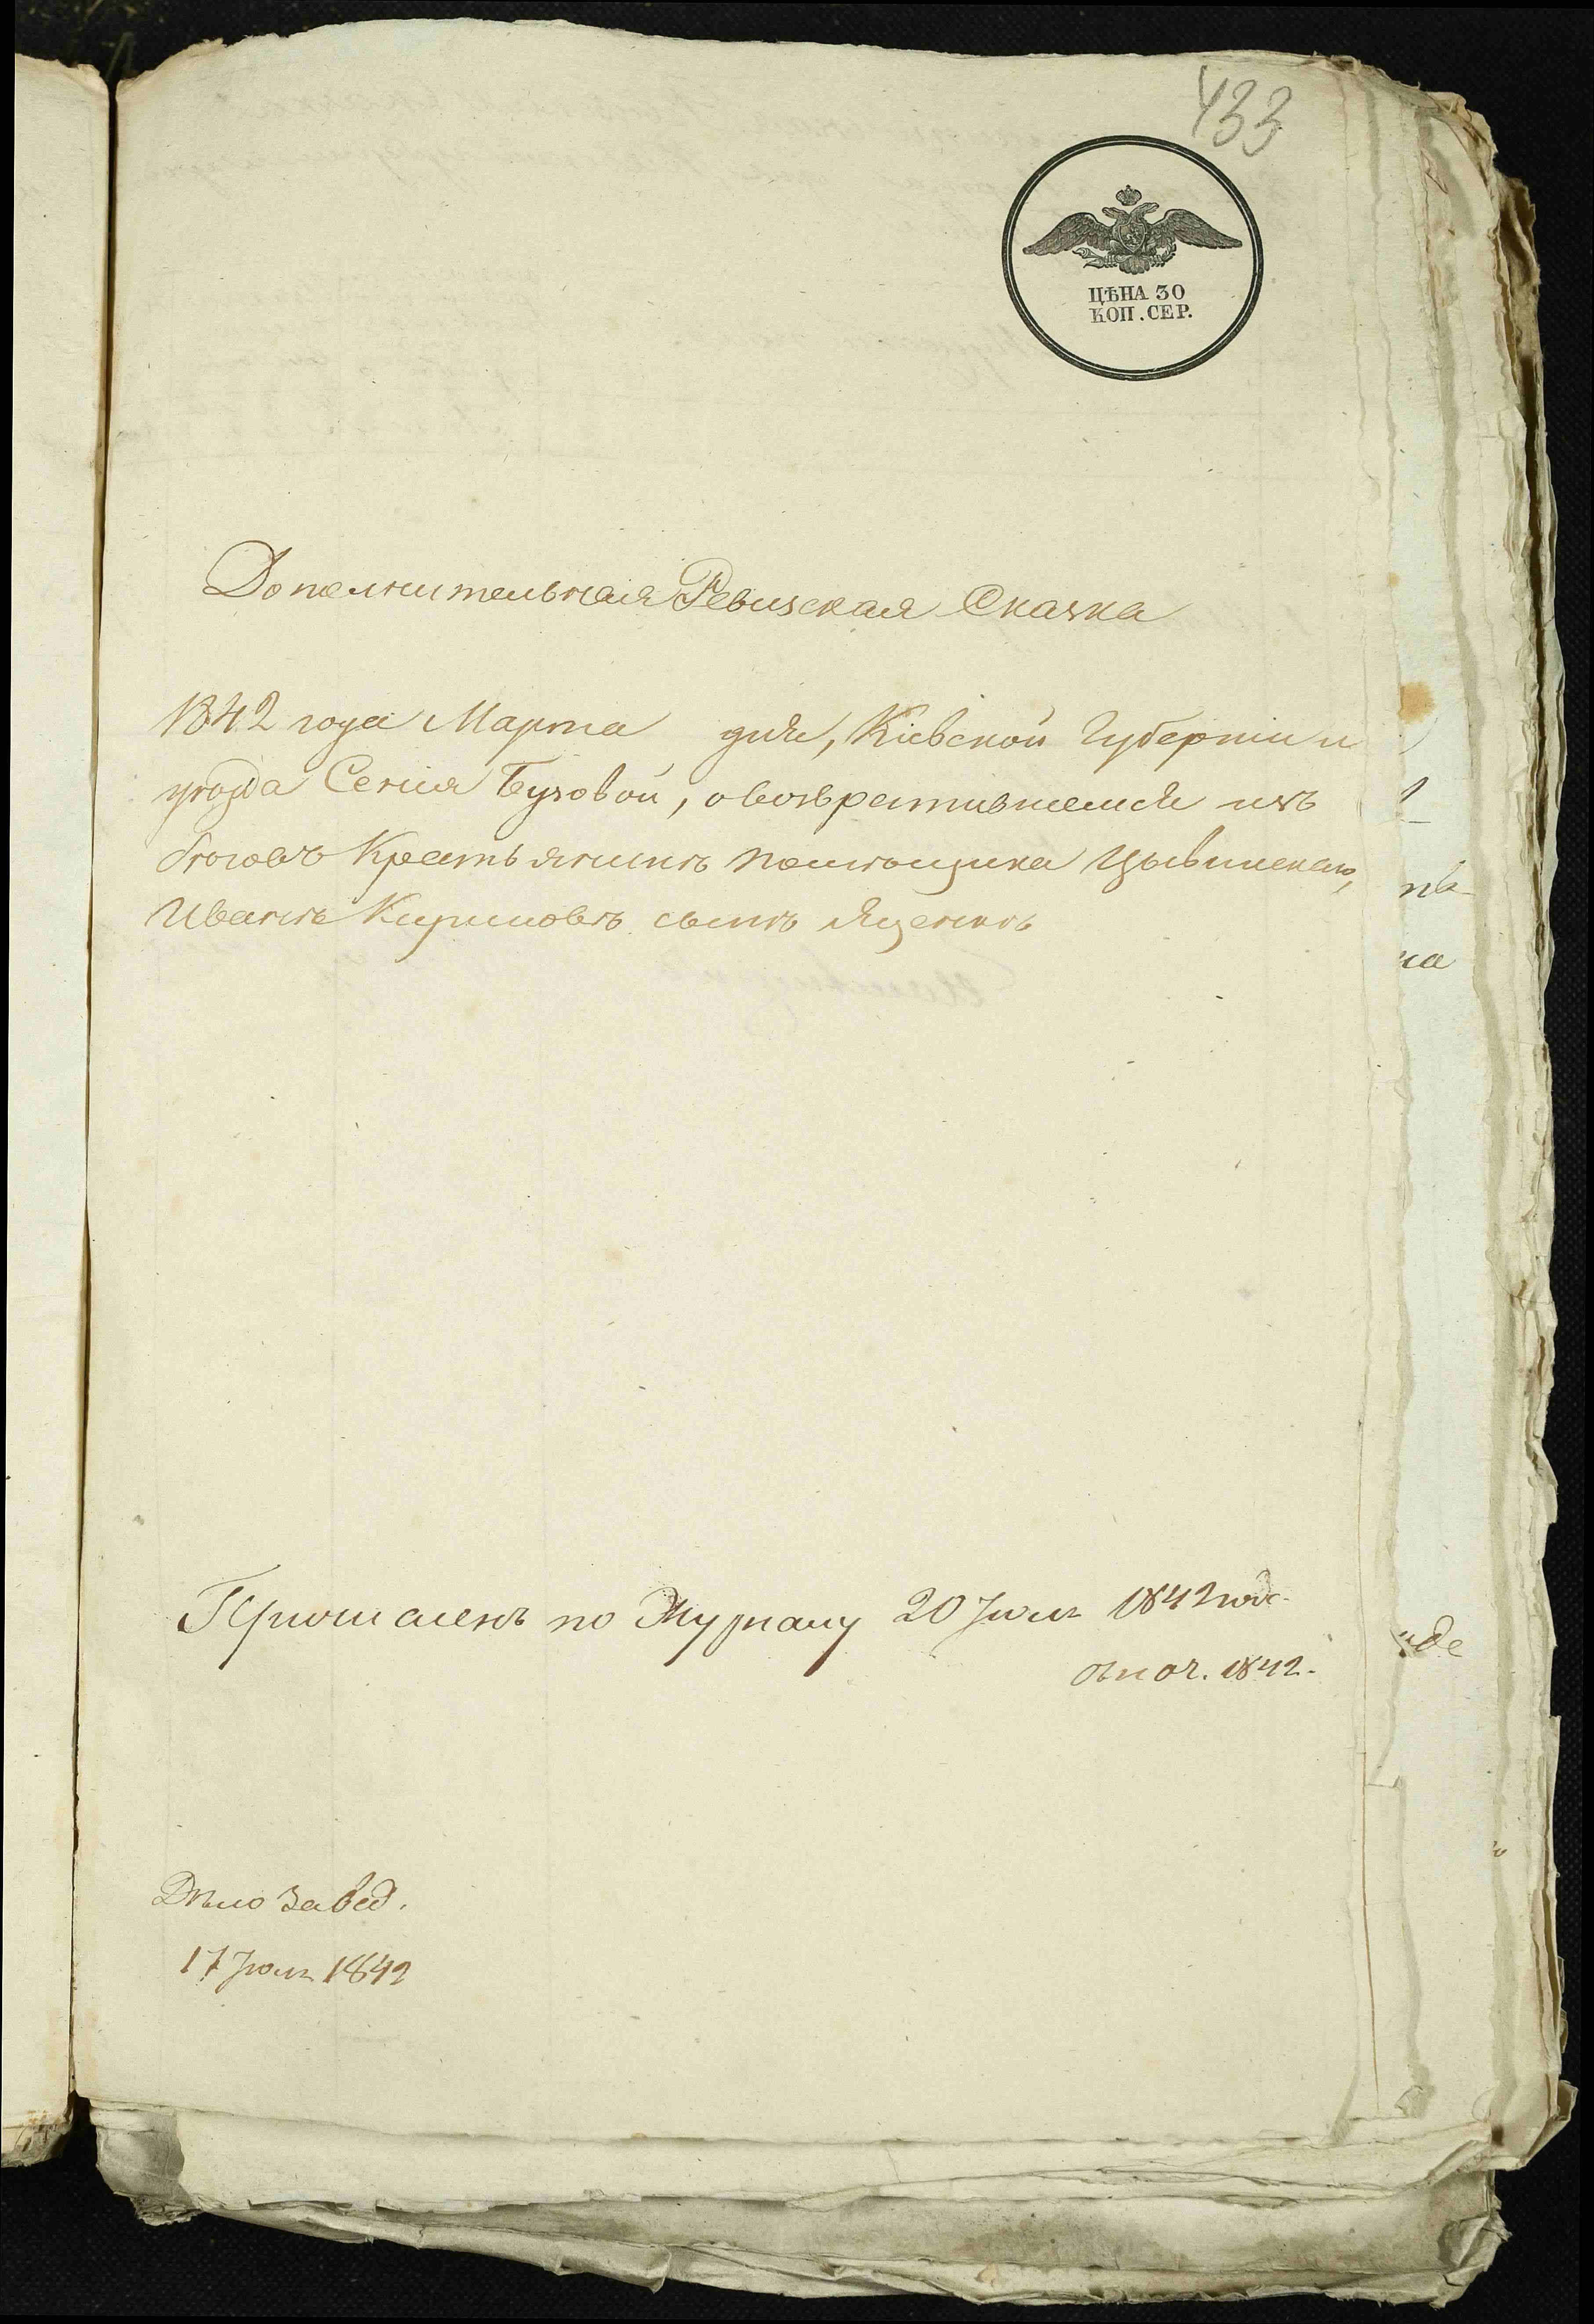 433
ЦѢНА 30
КОП. СЕР.
Дополнительная Ревизская Сказка
1842 года Марта дня, Кіевской Губерніи и
уѣзда Селѣ Бузовой, о возвратившемся изъ
бѣговъ Крестьянинѣ помѣщика Цывинскаго,
Иванѣ Кириловѣ сынѣ Яценкѣ
по Журналу 20 Іюля 1842 года
1842.
Дѣло завед.
17 Іюля 1842